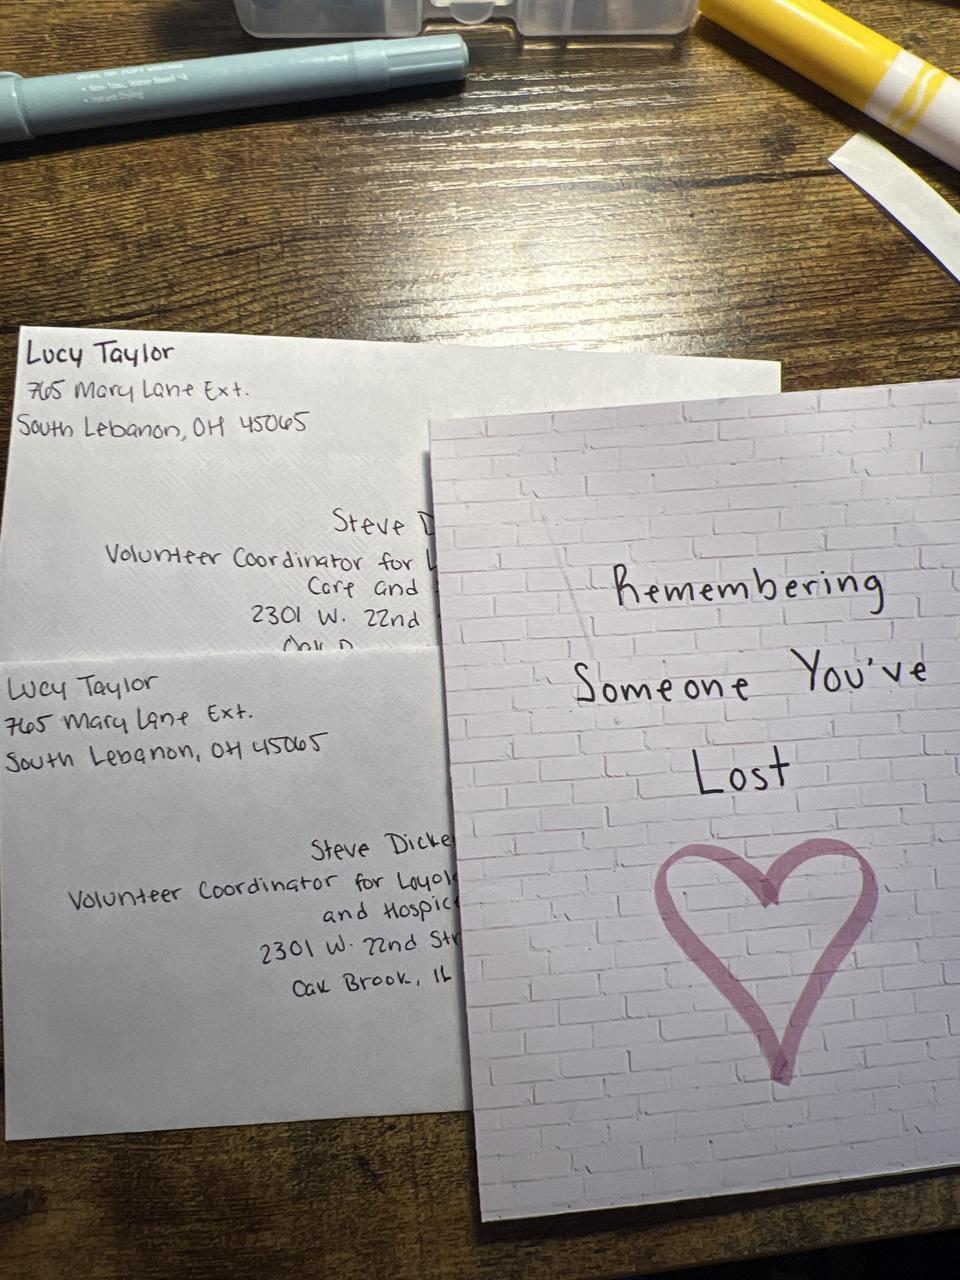 DUAL TIP
• Non-Toxic, Water Based
• Instant Drying
Lucy Taylor
765 Mary Lane Ext.
South Lebanon, OH 45065
Steve D
Volunteer Coordinator for L
Care and
2301 W. 22nd
Oak B
Lucy Taylor
765 Mary Lane Ext.
South Lebanon, OH 45065
Steve Dicke
Volunteer Coordinator for Loyol
and Hospic
2301 W. 22nd Str
Oak Brook, IL
Remembering
Someone You've
Lost